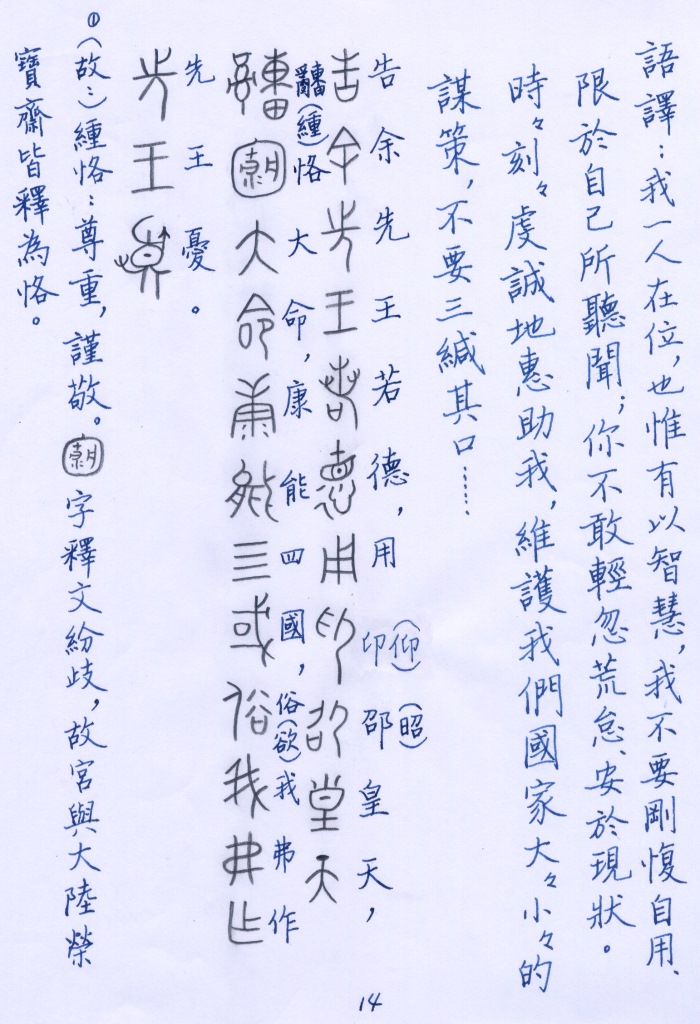 語譯：我一人在位，也惟有以智慧，我不要剛愎自用、
限於自己所聽聞；你不敢輕忽荒怠、安於現狀。
時々刻々虔誠地惠助我，維護我們國家大々小々的
謀策，不要三緘其口……
告余先王若德，用印(仰)邵(昭)皇天，
告余先王若德用印邵皇天
(緟)恪大命，康能四國，俗(欲)我弗作
大命康能三或俗我弗作
先王憂。
先王
①(故:)緟恪：尊重，謹敬。字釋文紛歧，故宮與大陸榮
寶齋皆釋為恪。
14